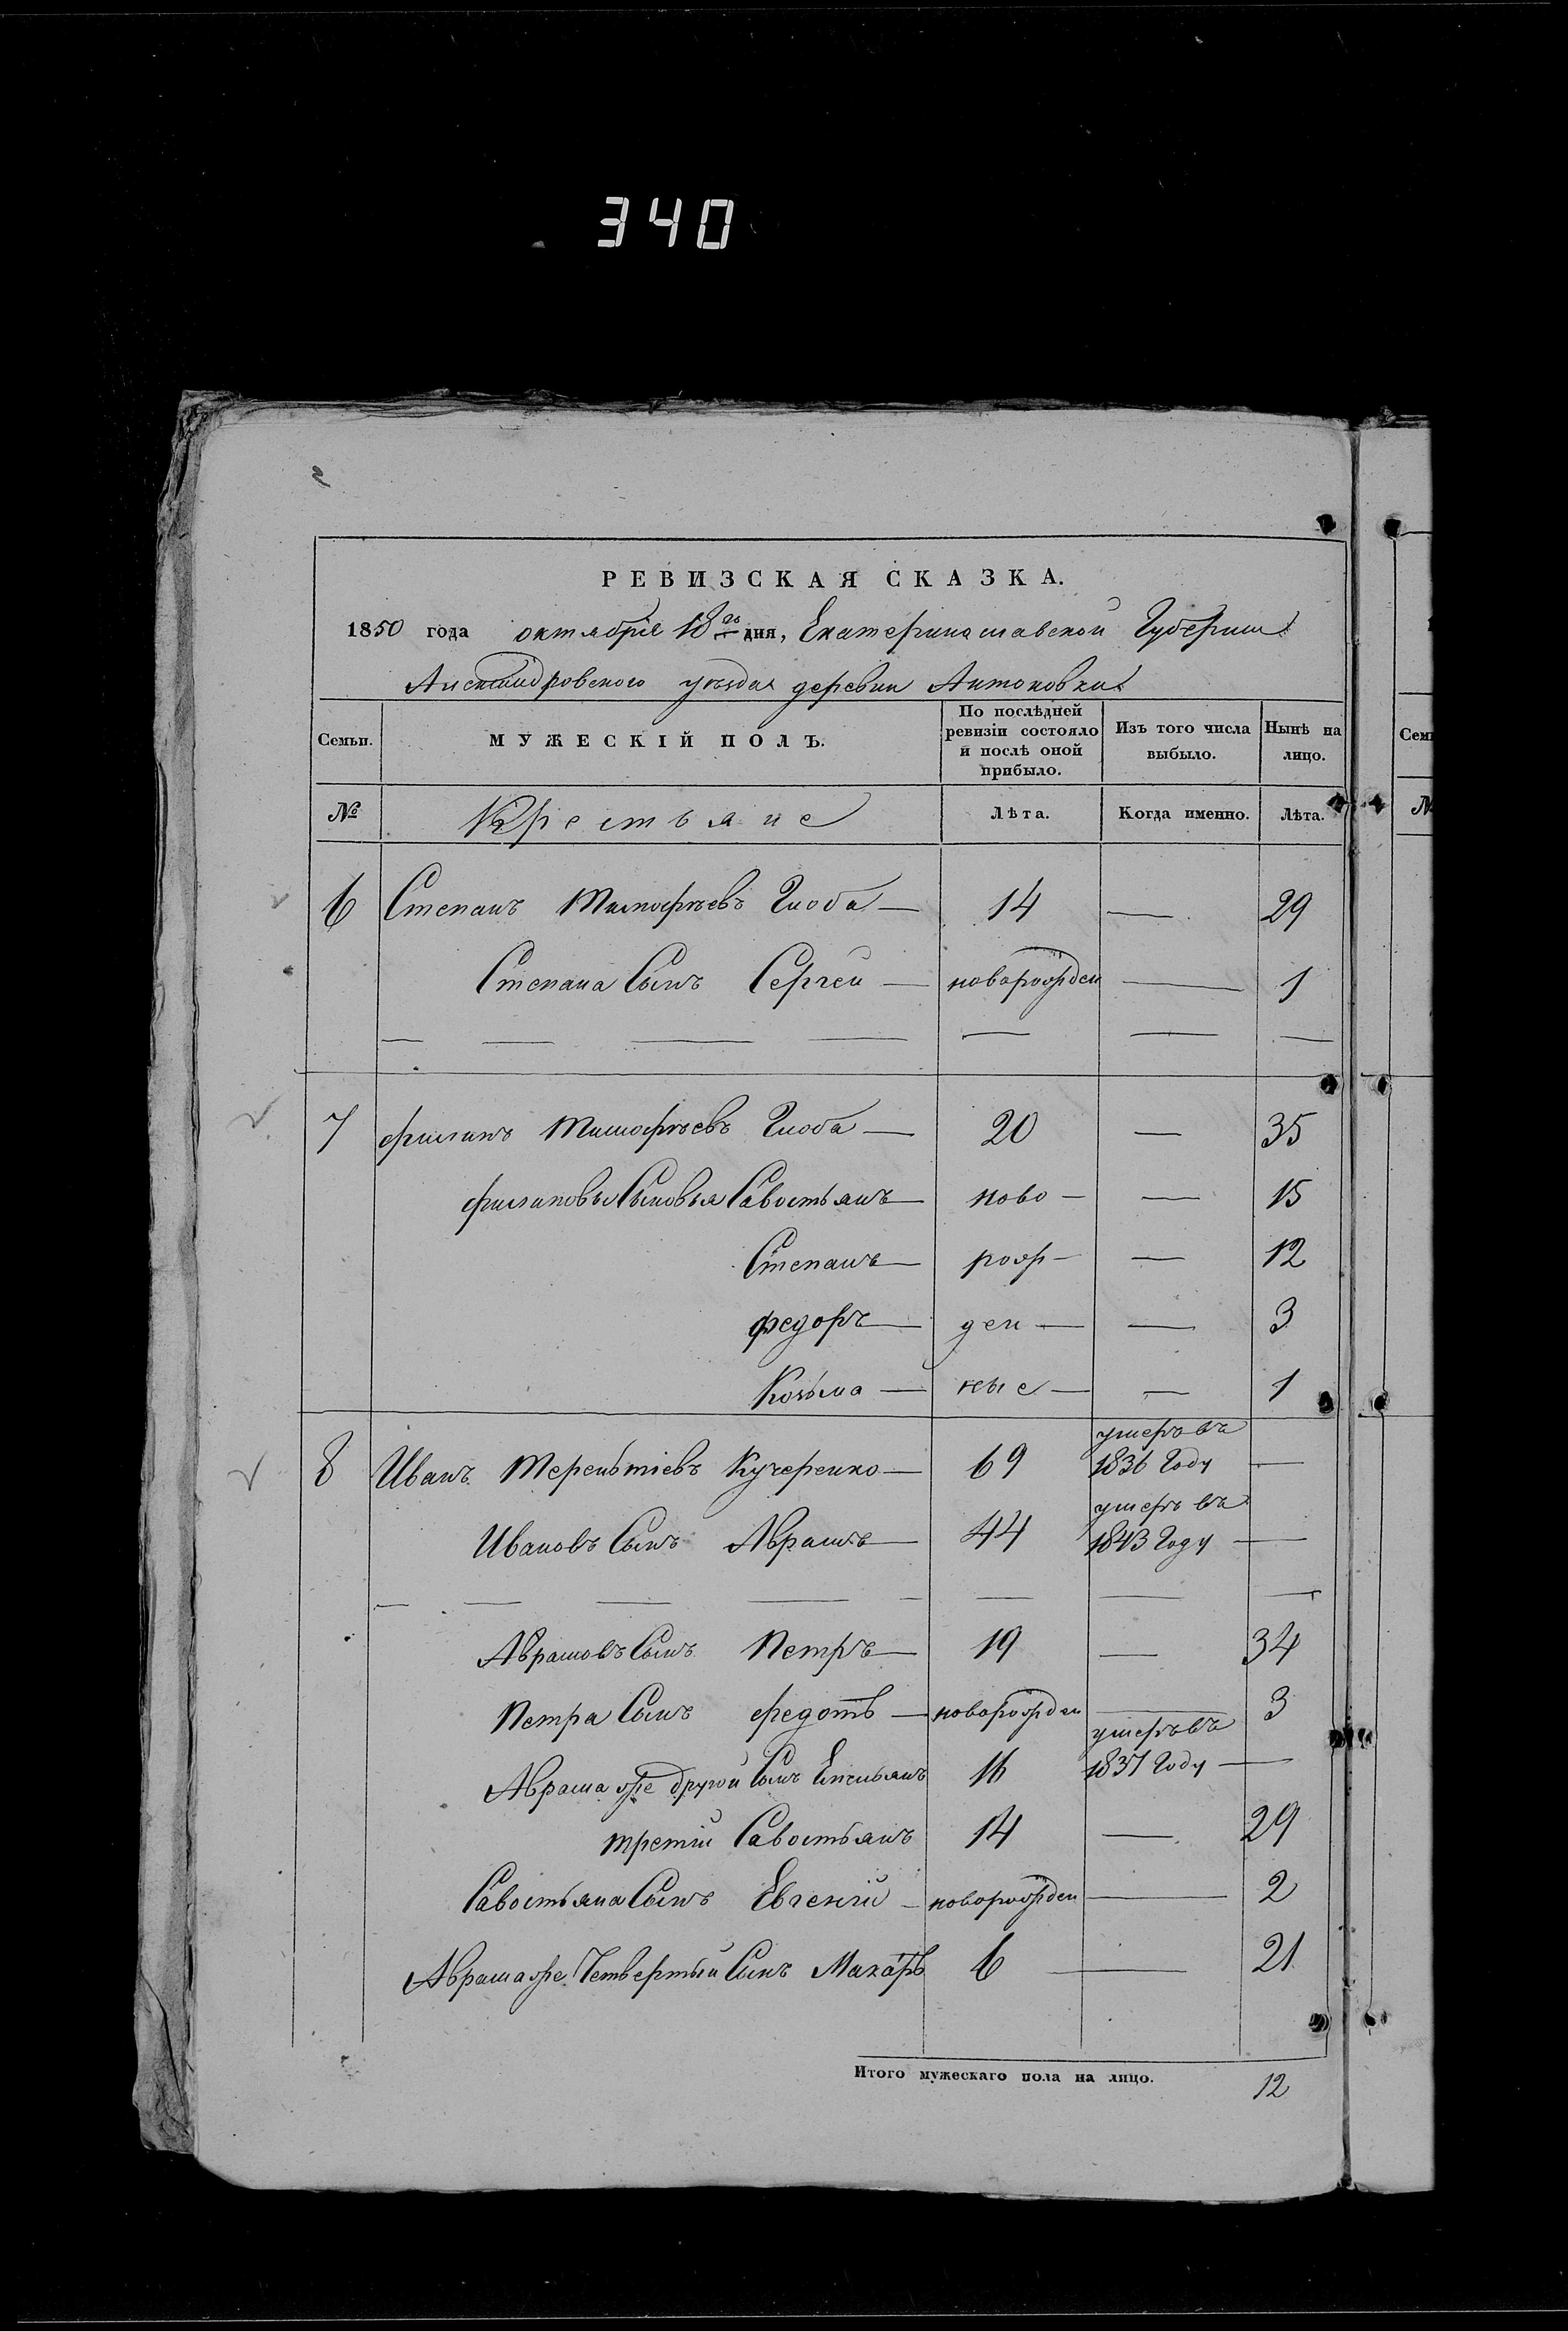 340
2
РЕВИЗСКАЯ СКАЗКА.
1850 года октября 18го дня, Екатеринославской Губернии
Александровского уезда деревни Антоновки
Семьи. МУЖЕСКІЙ ПОЛЪ. По послѣдней ревизіи состояло и послѣ оной прибыло. Изъ того числа выбыло. Нынѣ на лицо.
№ Крестьяне Лѣта. Когда именно. Лѣта.
6 Степанъ Тимофѣевъ Глоба — 14 — 29
Степана Сынъ Сергей — новорожден — 1
7 Филипъ Тимофѣевъ Глоба — 20 — 35
Филиповы Сыновья Савостьянъ — ново — — 15
Степанъ — рож — — 12
Федоръ — ден — — 3
Козьма — ные — — 1
8 Иванъ Терентіевъ Кучеренко — 69 умеръ въ 1836 Году —
Ивановъ Сынъ Абрамъ — 44 умеръ въ 1843 Году —
Абрамовъ Сынъ Петръ — 19 — 34
Петра Сынъ Федотъ — новорожден — 3
Абрама же другой Сынъ Емельянъ 16 умеръ въ 1837 Году —
третій Савостьянъ 14 — 29
Савостьяна Сынъ Евгеній — новорожден — 2
Абрама же Четвертый Сынъ Макаръ 6 — 21
Итого мужескаго пола на лицо. 12
Сем
№